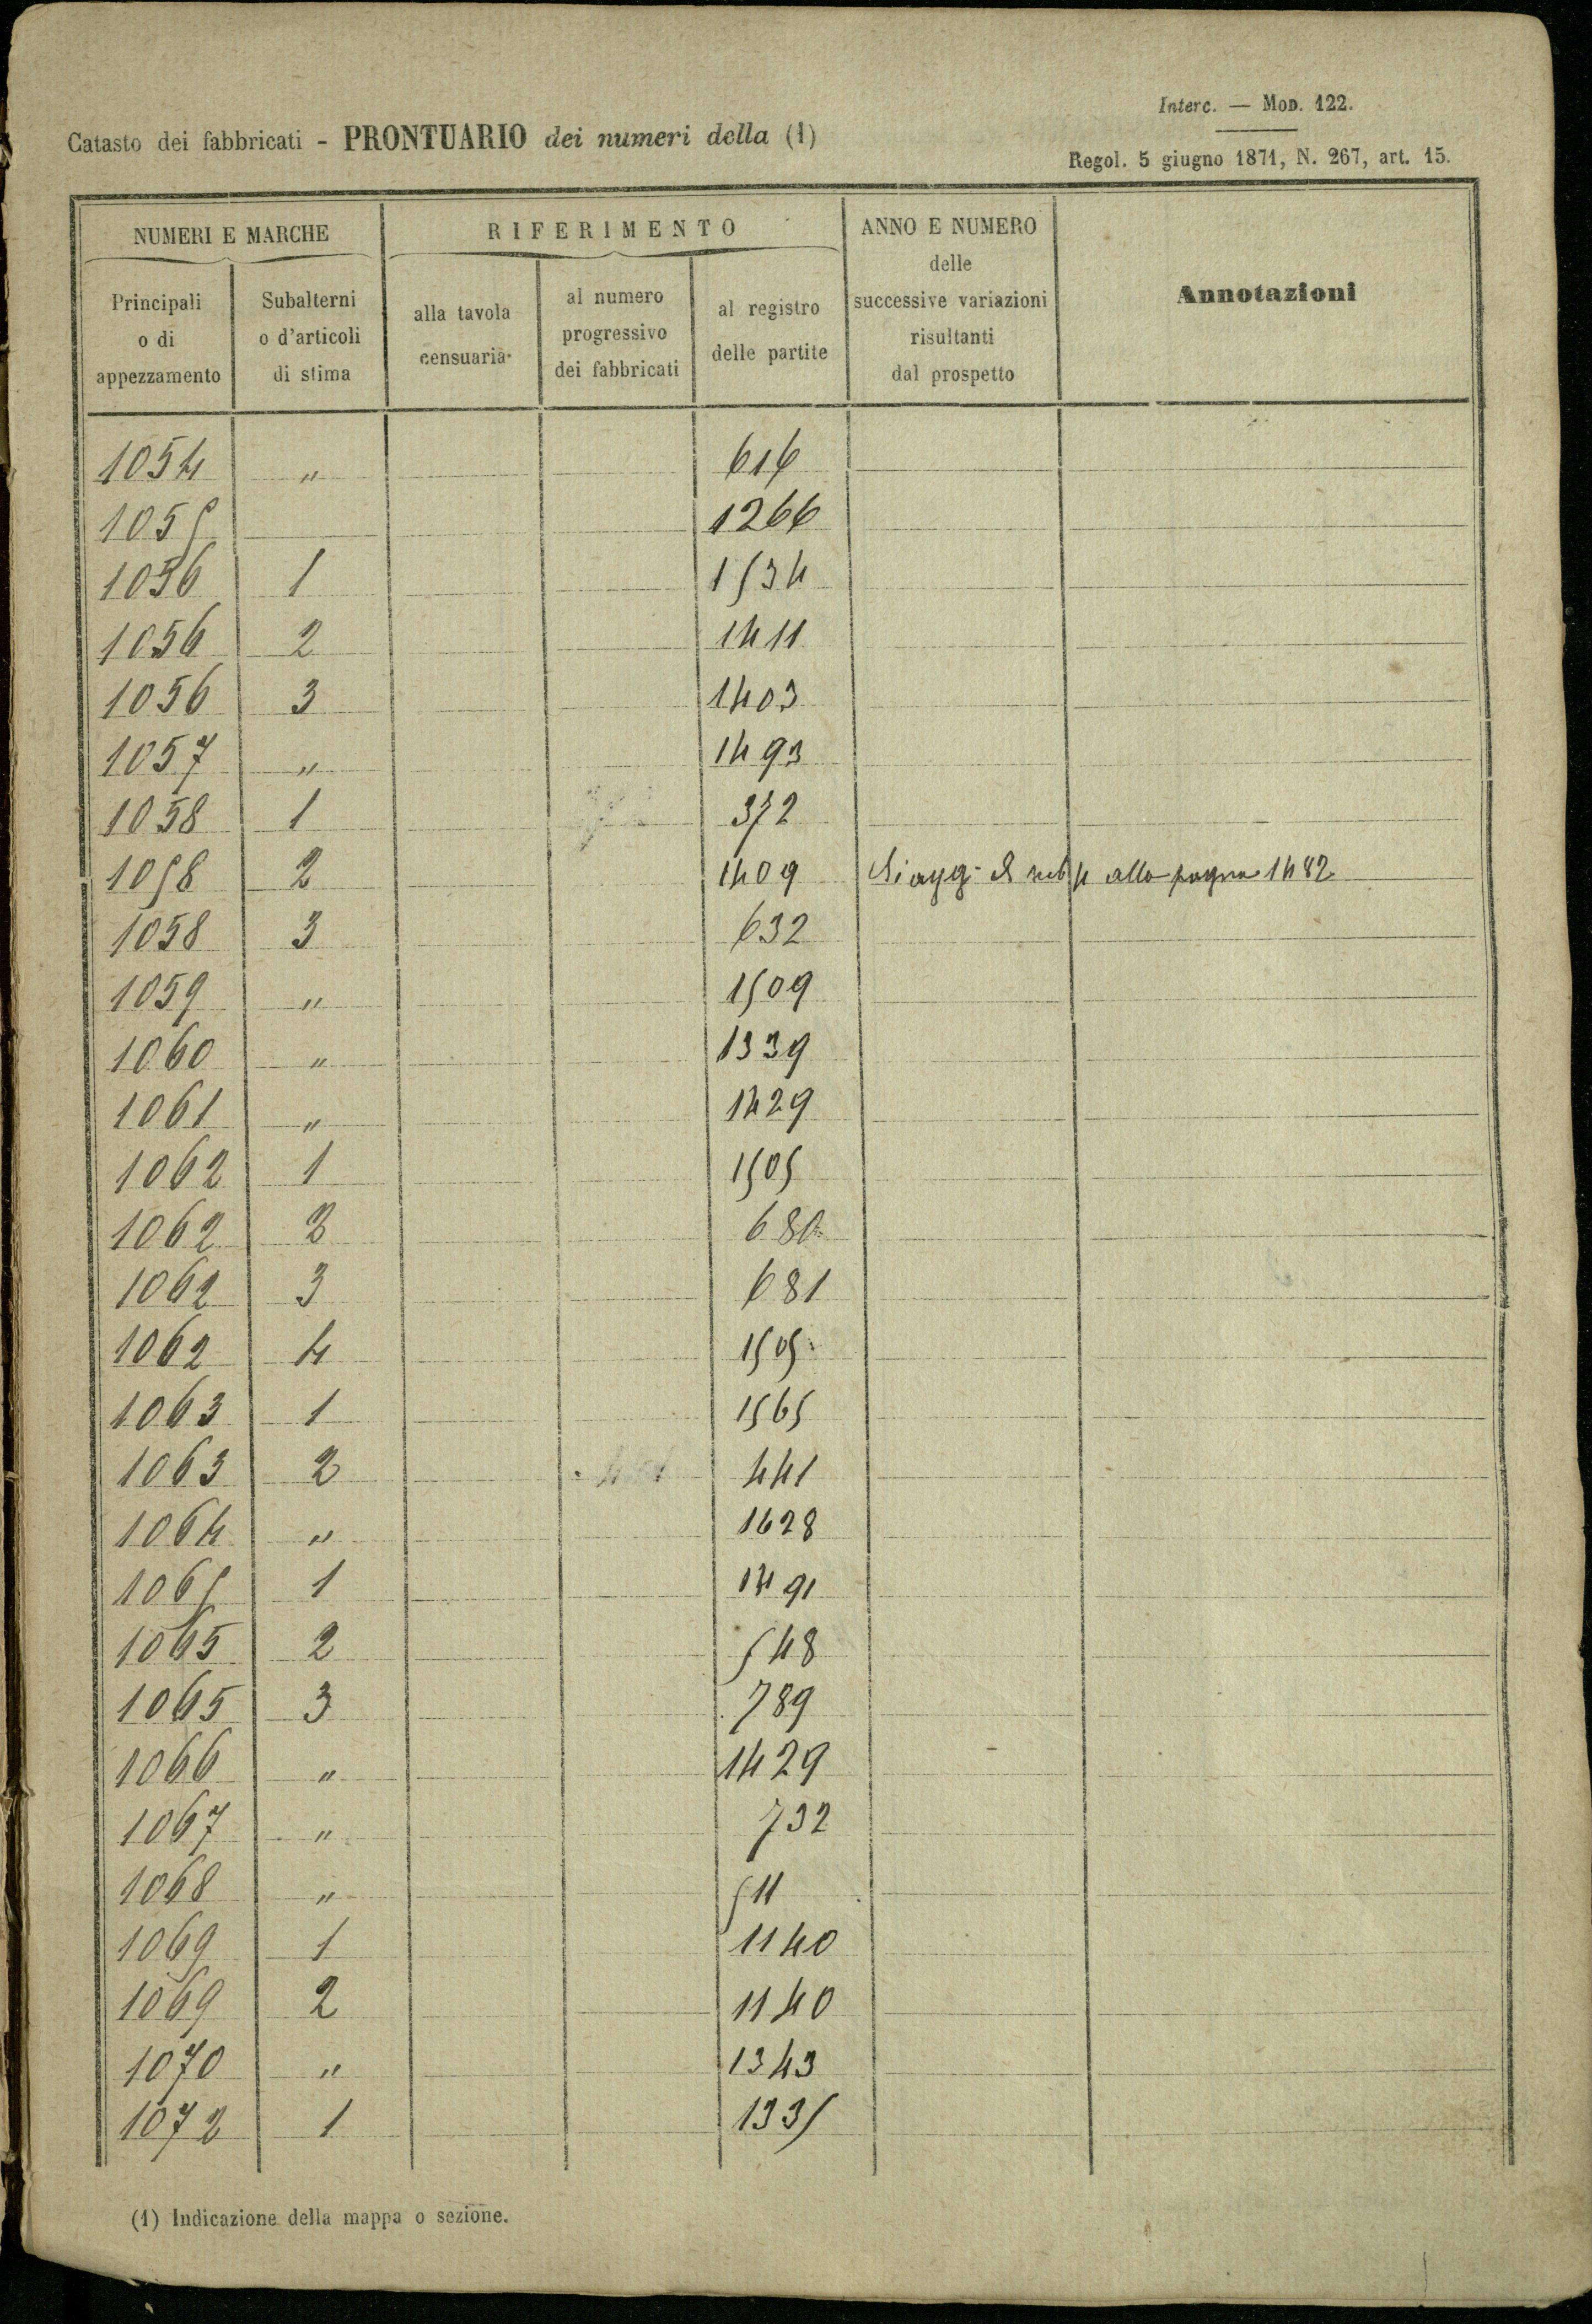 Interc. — Mod. 122.
Catasto dei fabbricati - PRONTUARIO dei numeri della (1)
Regol. 5 giugno 1871, N. 267, art. 15.
NUMERI E MARCHE
RIFERIMENTO
ANNO E NUMERO
delle
successive variazioni
risultanti
dal prospetto
Annotazioni
Principali
o di
appezzamento
Subalterni
o d'articoli
di stima
alla tavola
censuaria
al numero
progressivo
dei fabbricati
al registro
delle partite
1054 " 616
1055 1266
1056 1 1534
1056 2 1411
1056 3 1403
1057 " 1493
1058 1 372
1058 2 1409 alla pagina 1482
1058 3 632
1059 " 1509
1060 " 1339
1061 " 1429
1062 1 1505
1062 2 680
1062 3 681
1062 4 1505
1063 1 1565
1063 2 441
1064 " 1628
1065 1 1491
1065 2 548
1065 3 789
1066 " 1429
1067 " 732
1068 " 511
1069 1 1140
1069 2 1140
1070 " 1343
1072 1 1335
(1) Indicazione della mappa o sezione.